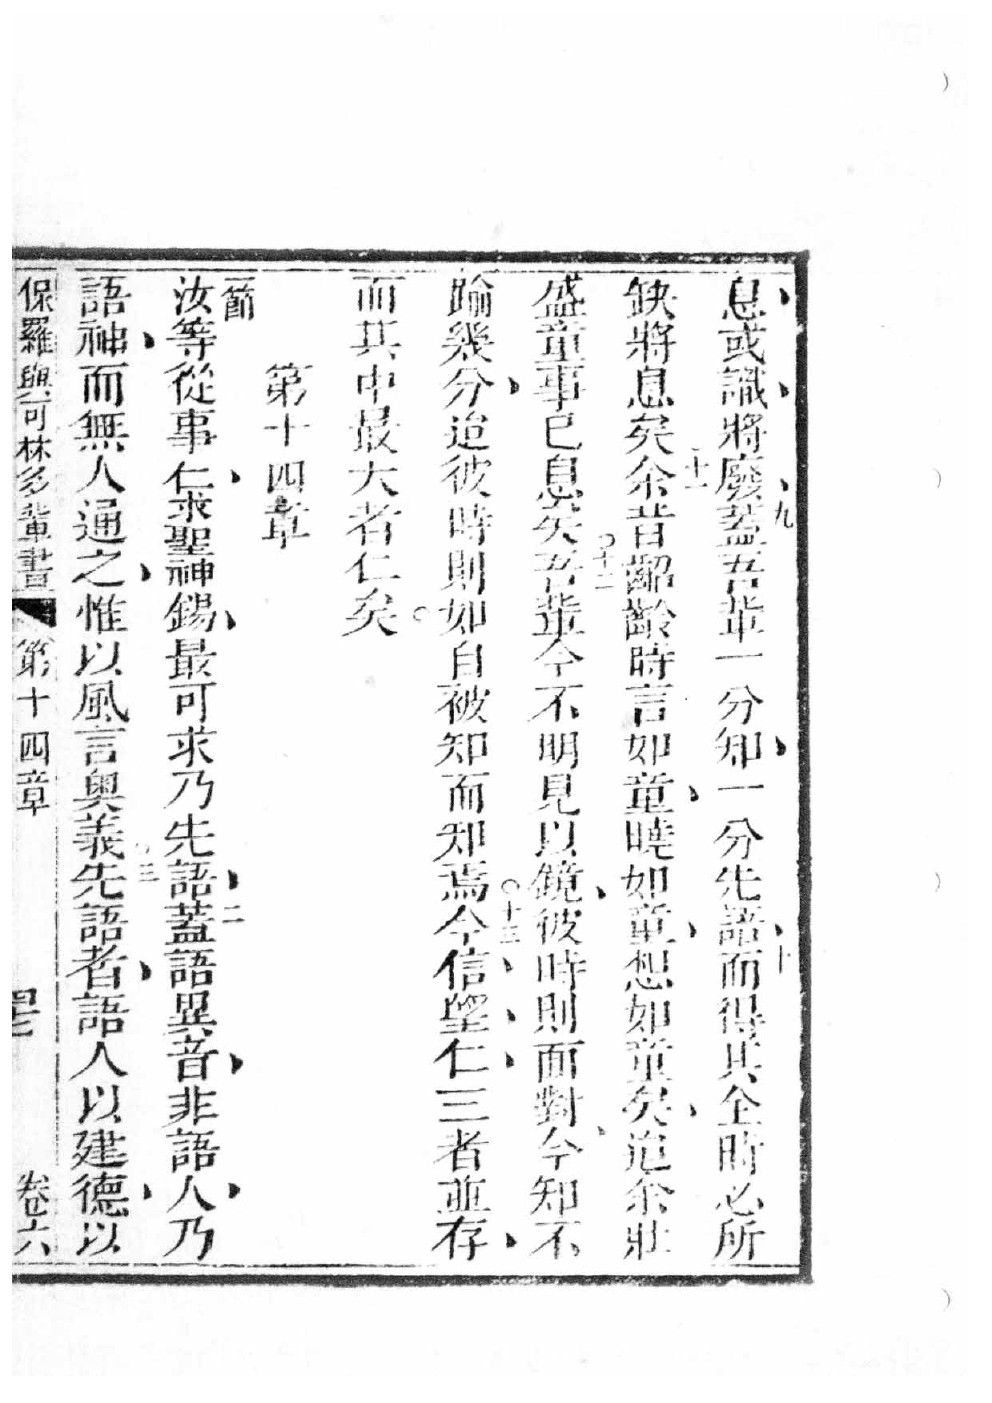 息或識將廢蓋吾輩一分知一分先語而得其全時必所
九
十
缺將息矣余昔齠齡時言如童曉如童想如童矣迨余壯
十一
盛童事已息矣吾輩今不明見以鏡彼時則面對今知不
十二
踰幾分迨彼時則如自被知而知焉今信望仁三者並存
十三
而其中最大者仁矣
第十四章
一節
汝等從事仁求聖神錫最可求乃先語蓋語異音非語人乃
二
語神而無人通之惟以風言奧義先語者語人以建德以
三
保羅與可林多輩書 第十四章 卷六